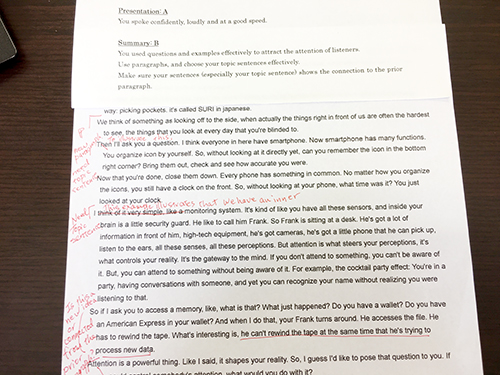 Presentation: A
You spoke confidently, loudly and at a good speed.
Summary: B
You used questions and examples effectively to attract the attention of listeners.
Use paragraphs, and choose your topic sentences effectively.
Make sure your sentences (especially your topic sentence) shows the connection to the prior
paragraph.
way: picking pockets. it's called SURI in japanese.
We think of something as looking off to the side, when actually the things right in front of us are often the hardest
to see, the things that you look at every day that you're blinded to.
Then I'll ask you a question. I think everyone in here have smartphone. Now smartphone has many functions.
You organize icon by yourself. So, without looking at it directly yet, can you remember the icon in the bottom
right corner? Bring them out, check and see how accurate you were.
Now that you're done, close them down. Every phone has something in common. No matter how you organize
the icons, you still have a clock on the front. So, without looking at your phone, what time was it? You just
looked at your clock.
This example illustrates that we have an inner
I think of it very simple, like a monitoring system. It's kind of like you have all these sensors, and inside your
brain is a little security guard. He like to call him Frank. So Frank is sitting at a desk. He's got a lot of
information in front of him, high-tech equipment, he's got cameras, he's got a little phone that he can pick up,
listen to the ears, all these senses, all these perceptions. But attention is what steers your perceptions, it's
what controls your reality. It's the gateway to the mind. If you don't attend to something, you can't be aware
of it. But, you can attend to something without being aware of it. For example, the cocktail party effect: You're in a
party, having conversations with someone, and yet you can recognize your name without realizing you were
listening to that.
So if I ask you to access a memory, like, what is that? What just happened? Do you have a wallet? Do you have
an American Express in your wallet? And when I do that, your Frank turns around. He accesses the file. He
has to rewind the tape. What's interesting is, he can't rewind the tape at the same time that he's trying to
process new data.
Attention is a powerful thing. Like I said, it shapes your reality. So, I guess I'd like to pose that question to you. If
attention, what would you do with it?
need
topic
sentence
Is this
a new idea
or
connected
from the
prior